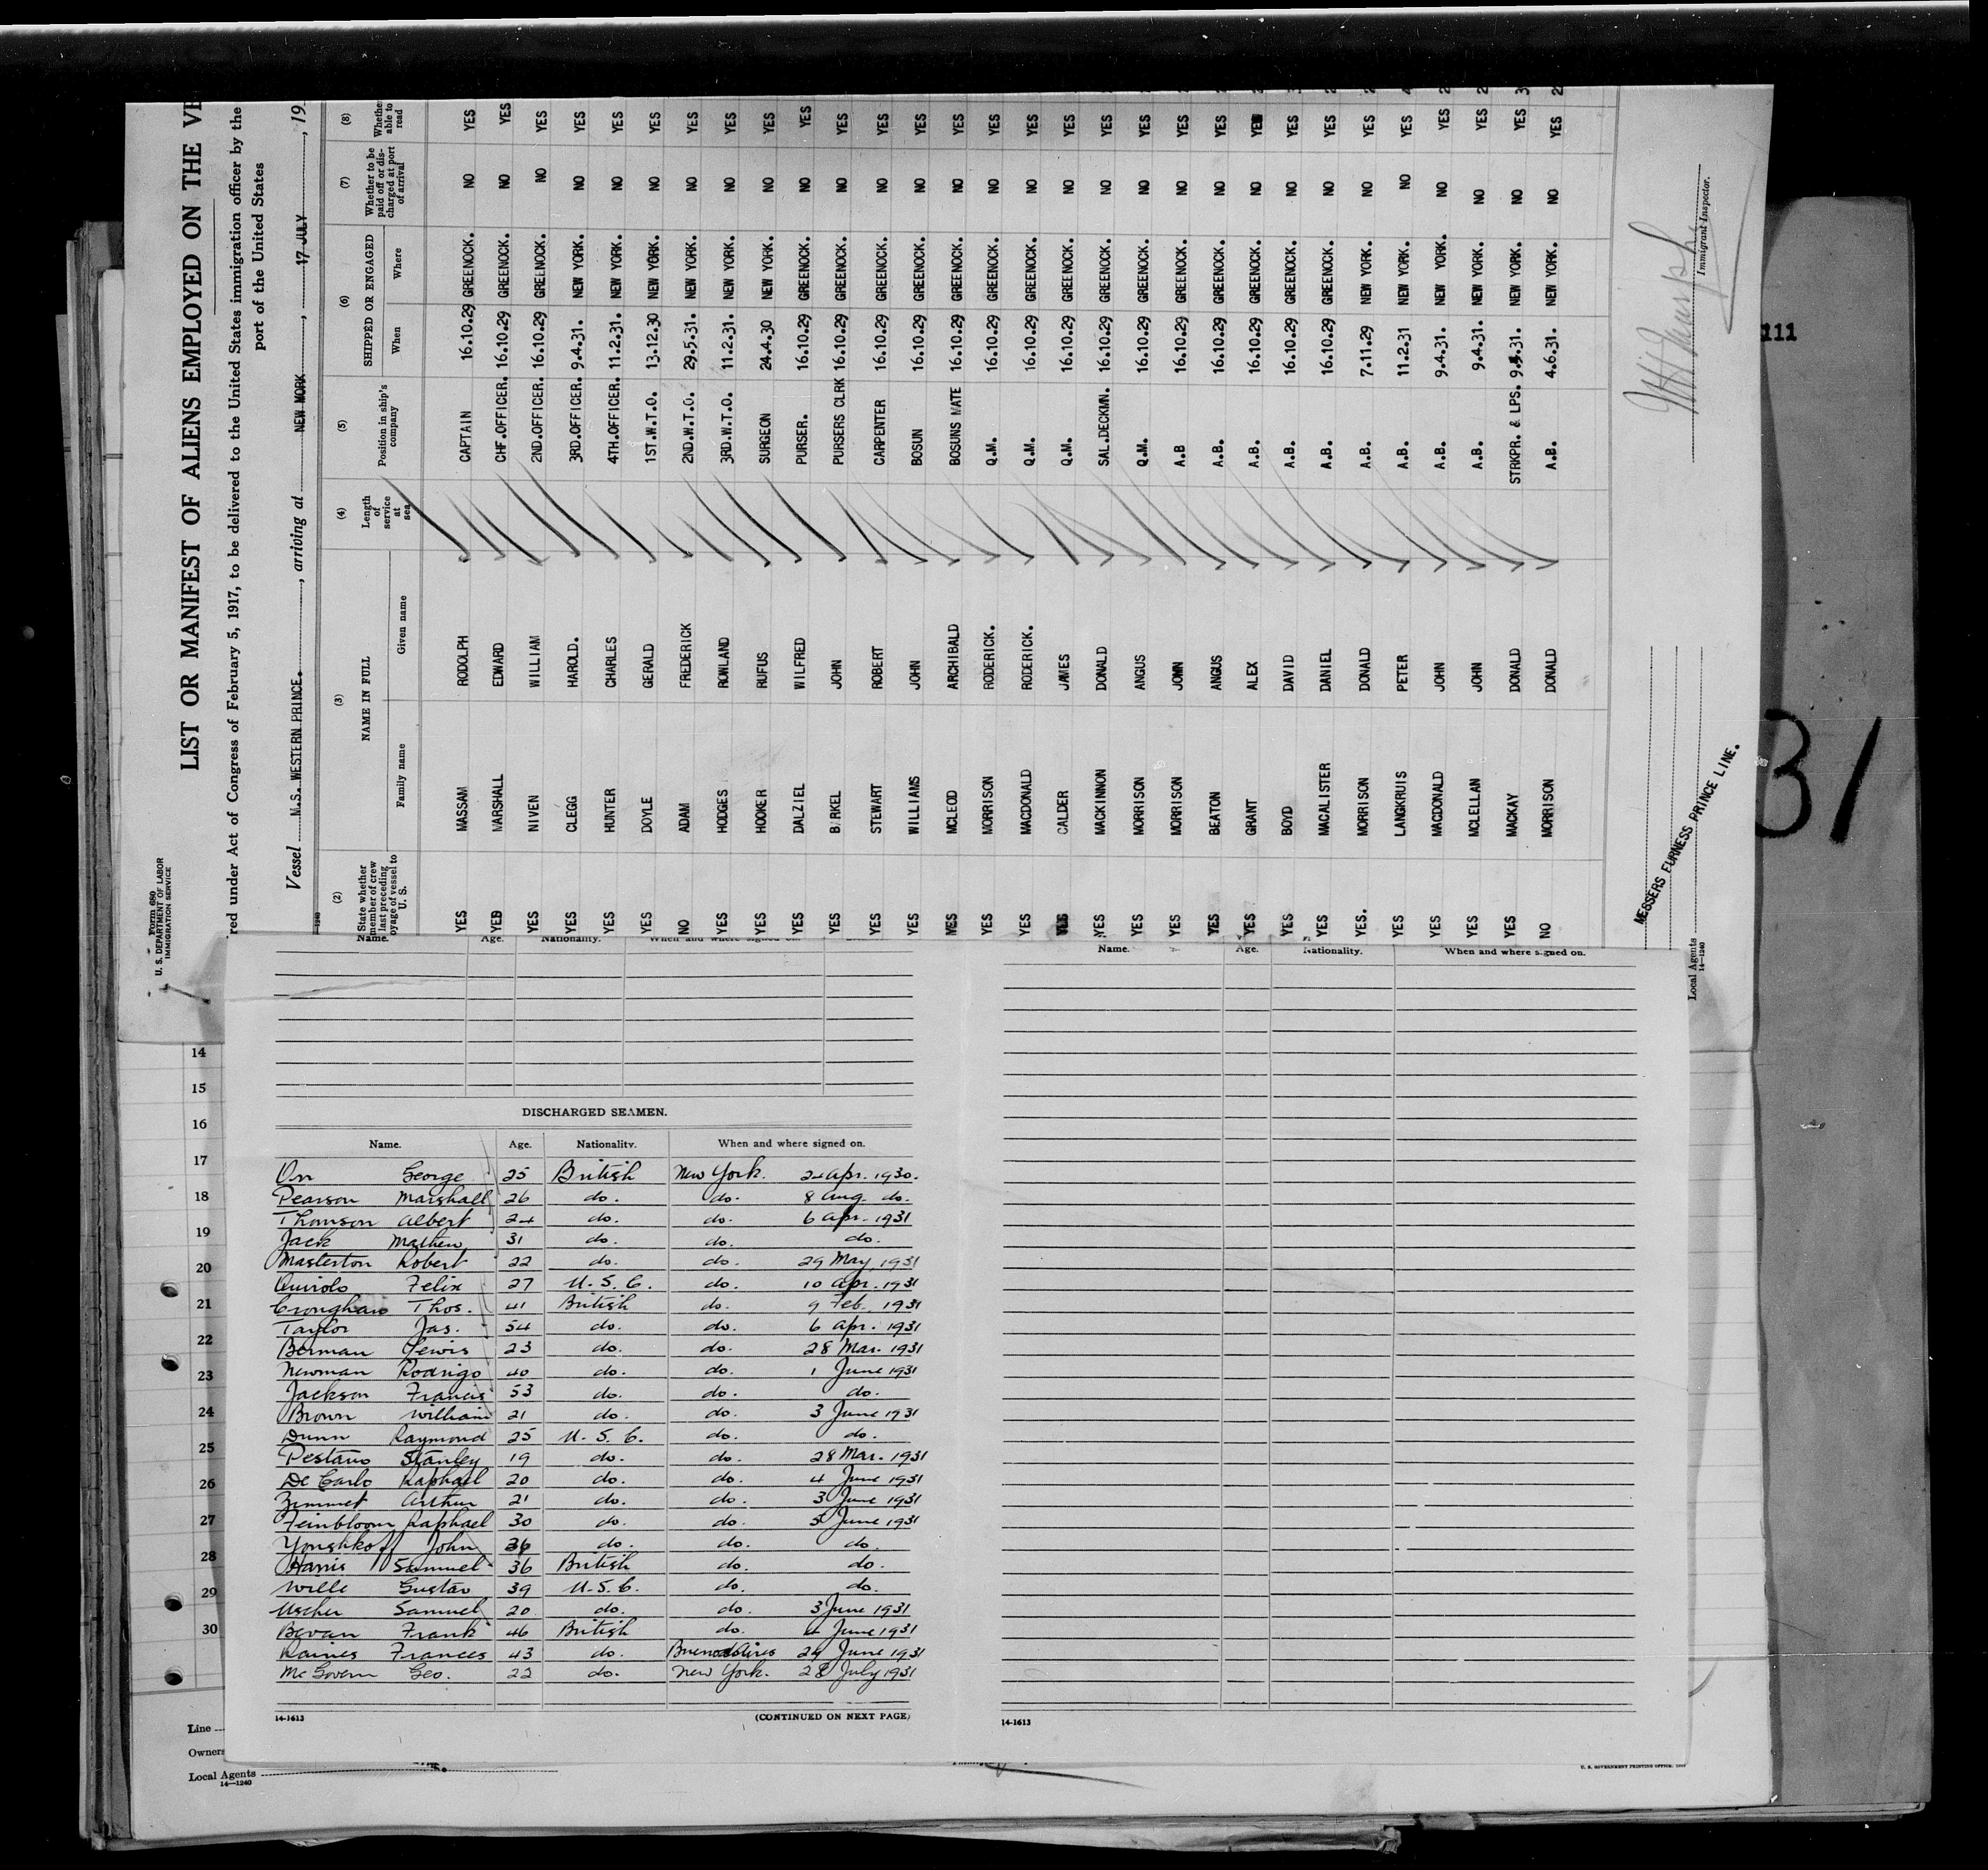 Form 680
U. S. DEPARTMENT OF LABOR
IMMIGRATION SERVICE
LIST OR MANIFEST OF ALIENS EMPLOYED ON THE VE
red under Act of Congress of February 5, 1917, to be delivered to the United States immigration officer by the
port of the United States
Vessel M.S. WESTERN PRINCE. , arriving at NEW YORK , 17 JULY , 19
(2) (3) (4) (5) (6) (7) (8)
State whether member of crew last preceding voyage of vessel to U. S. NAME IN FULL Length of service at sea Position in ship's company SHIPPED OR ENGAGED Whether to be paid off or discharged at port of arrival Whether able to read
Family name Given name When Where
YES MASSAM RODOLPH CAPTAIN 16.10.29 GREENOCK. NO YES
YES MARSHALL EDWARD CHF.OFFICER. 16.10.29 GREENOCK. NO YES
YES NIVEN WILLIAM 2ND.OFFICER. 16.10.29 GREENOCK. NO YES
YES CLEGG HAROLD. 3RD.OFFICER. 9.4.31. NEW YORK. NO YES
YES HUNTER CHARLES 4TH.OFFICER. 11.2.31. NEW YORK. NO YES
YES DOYLE GERALD 1ST.W.T.O. 13.12.30 NEW YORK. NO YES
NO ADAM FREDERICK 2ND.W.T.O. 29.5.31. NEW YORK. NO YES
YES HODGES ROWLAND 3RD.W.T.O. 11.2.31. NEW YORK. NO YES
YES HOOKER RUFUS SURGEON 24.4.30 NEW YORK. NO YES
YES DALZIEL WILFRED PURSER. 16.10.29 GREENOCK. NO YES
YES B RKEL JOHN PURSERS CLRK 16.10.29 GREENOCK. NO YES
YES STEWART ROBERT CARPENTER 16.10.29 GREENOCK. NO YES
YES WILLIAMS JOHN BOSUN 16.10.29 GREENOCK. NO YES
YES MCLEOD ARCHIBALD BOSUNS MATE 16.10.29 GREENOCK. NO YES
YES MORRISON RODERICK. Q.M. 16.10.29 GREENOCK. NO YES
YES MACDONALD RODERICK. Q.M. 16.10.29 GREENOCK. NO YES
YES CALDER JAMES Q.M. 16.10.29 GREENOCK. NO YES
YES MACKINNON DONALD SAL.DECKMN. 16.10.29 GREENOCK. NO YES
YES MORRISON ANGUS Q.M. 16.10.29 GREENOCK. NO YES
YES MORRISON JOHN A.B 16.10.29 GREENOCK. NO YES
YES BEATON ANGUS A.B. 16.10.29 GREENOCK. NO YES
YES GRANT ALEX A.B. 16.10.29 GREENOCK. NO YES
YES BOYD DAVID A.B. 16.10.29 GREENOCK. NO YES
YES MACALISTER DANIEL A.B. 16.10.29 GREENOCK. NO YES
YES. MORRISON DONALD A.B. 7.11.29 NEW YORK. NO YES
YES LANGKRUIS PETER A.B. 11.2.31 NEW YORK. NO YES
YES MACDONALD JOHN A.B. 9.4.31. NEW YORK. NO YES
YES MCLELLAN JOHN A.B. 9.4.31. NEW YORK. NO YES
YES MACKAY DONALD STRKPR. & LPS. 9.4.31. NEW YORK. NO YES
NO MORRISON DONALD A.B. 4.6.31. NEW YORK. NO YES
Immigrant Inspector.
MESSERS FURNESS PRINCE LINE.
Local Agents
14—1240
111
31
Name. Age. Nationality. When and where signed on.
Name. Age. Nationality. When and where signed on.
DISCHARGED SEAMEN.
Name. Age. Nationality. When and where signed on.
Orr George 25 British New York. 24 Apr. 1930.
Pearson Marshall 26 do. do. 8 Aug. do.
Thomson Albert 24 do. do. 6 Apr. 1931
Jack Mathew 31 do. do. do.
Masterton Robert 22 do. do. 29 May 1931
Quirolo Felix 27 U.S.C. do. 10 Apr. 1931
Croughan Thos. 41 British do. 9 Feb. 1931
Taylor Jas. 54 do. do. 6 Apr. 1931
Berman Lewis 23 do. do. 28 Mar. 1931
Newman Rodrigo 40 do. do. 1 June 1931
Jackson Francis 53 do. do. do.
Brown William 21 do. do. 3 June 1931
Dunn Raymond 25 U.S.C. do. do.
Pestano Stanley 19 do. do. 28 Mar. 1931
De Carlo Raphael 20 do. do. 4 June 1931
Zimmet Arthur 21 do. do. 3 June 1931
Feinbloom Raphael 30 do. do. 5 June 1931
Youshkoff John 36 do. do. do.
Harris Samuel 36 British do. do.
Wille Gustav 39 U.S.C. do. do.
Uscher Samuel 20 do. do. 3 June 1931
Bevan Frank 46 British do. 4 June 1931
Raines Frances 43 do. Buenos Aires 24 June 1931
McGovern Geo. 22 do. New York. 28 July 1931
14-1613 (CONTINUED ON NEXT PAGE)
14-1613
14
15
16
17
18
19
20
21
22
23
24
25
26
27
28
29
30
Line
Owners
Local Agents
14—1240
U. S. GOVERNMENT PRINTING OFFICE